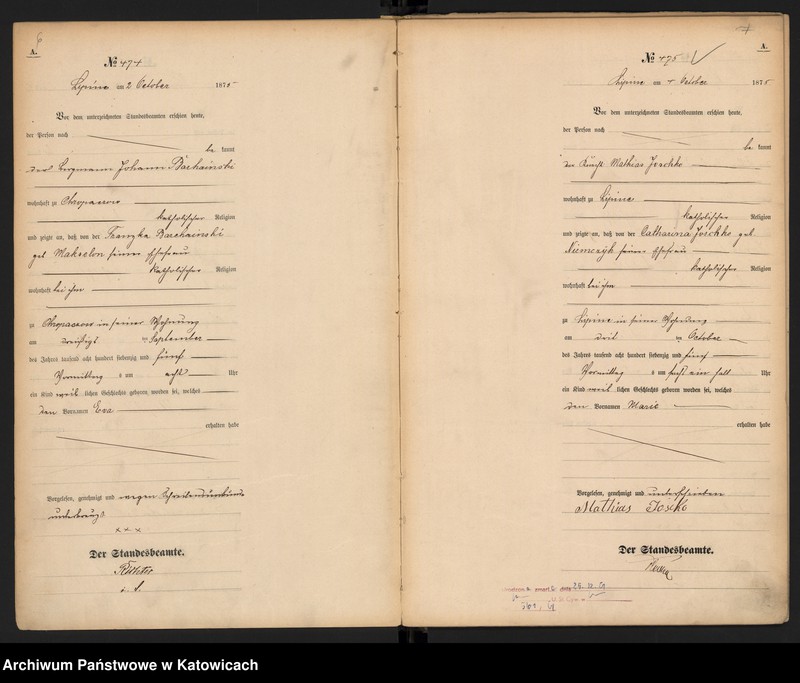 A.
6
№ 474
Lipine am 2 October 1875
Vor dem unterzeichneten Standesbeamten erschien heute,
der Person nach
be kannt
der Bergmann Johann Bachainski
wohnhaft zu Chropaczow
katholischer Religion
und zeigte an, daß von der Franzka Bachainski
geb Makselon seiner Ehefrau
katholischer Religion
wohnhaft bei ihm
zu Chropaczow in seiner Wohnung
am dreißigst en September
des Jahres tausend acht hundert siebenzig und fünf
Vormittag s um acht Uhr
ein Kind weib lichen Geschlechts geboren worden sei, welches
den Vornamen Eva
erhalten habe
Vorgelesen, genehmigt und wegen Schreibensunkunde
unterkreuzt
x x x
Der Standesbeamte.
Richter
i. V.
7
A.
№ 475
Lipine am 4 October 1875
Vor dem unterzeichneten Standesbeamten erschien heute,
der Person nach
be kannt
der Knecht Mathias Joschko
wohnhaft zu Lipine
katholischer Religion
und zeigte an, daß von der Catharina Joschko geb
Niemczyk seiner Ehefrau
katholischer Religion
wohnhaft bei ihm
zu Lipine in seiner Wohnung
am drit en October
des Jahres tausend acht hundert siebenzig und fünf
Vormittag s um sechs ein halb Uhr
ein Kind weib lichen Geschlechts geboren worden sei, welches
den Vornamen Marie
erhalten habe
Vorgelesen, genehmigt und unterschrieben
Mathias Joschko
Der Standesbeamte.
Archiwum Państwowe w Katowicach